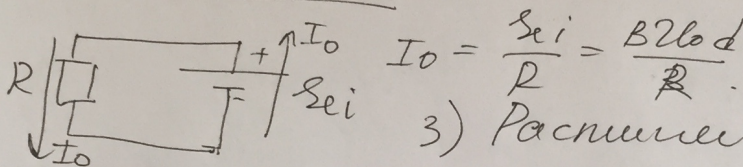 R I₀ + - I₀ ξei
I₀ = ξei / R = BυL₀d / R.
3) Распишем